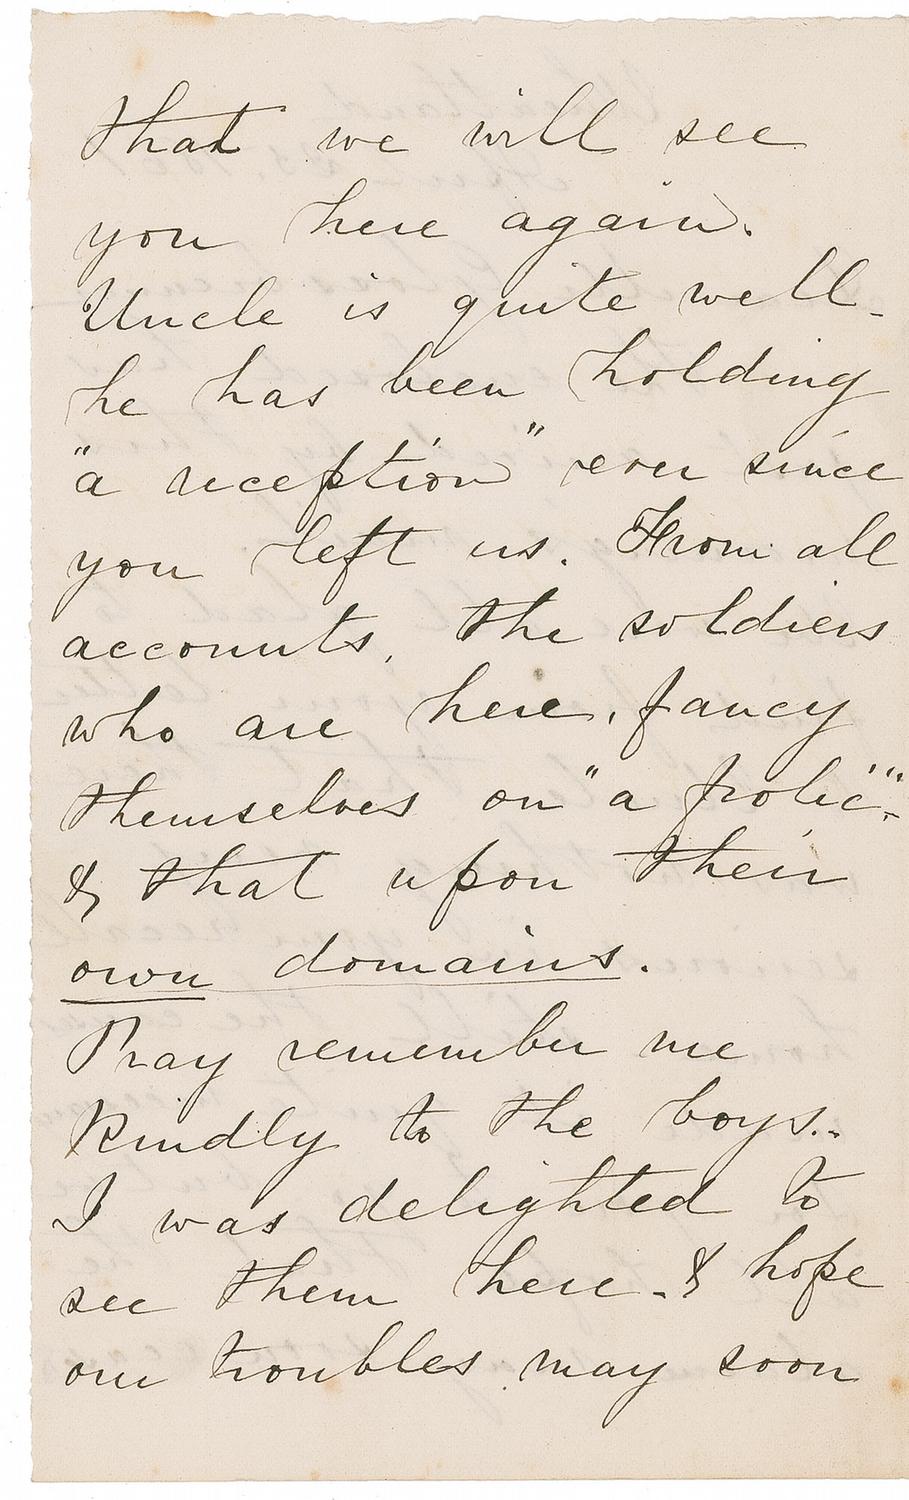 that we will see
you here again.
Uncle is quite well -
he has been holding
"a reception" ever since
you left us. From all
accounts, the soldiers
who are here, fancy
themselves on "a frolic" -
& that upon their
own domains.
Pray remember me
kindly to the boys..
I was delighted to
see them here - & hope
our troubles may soon